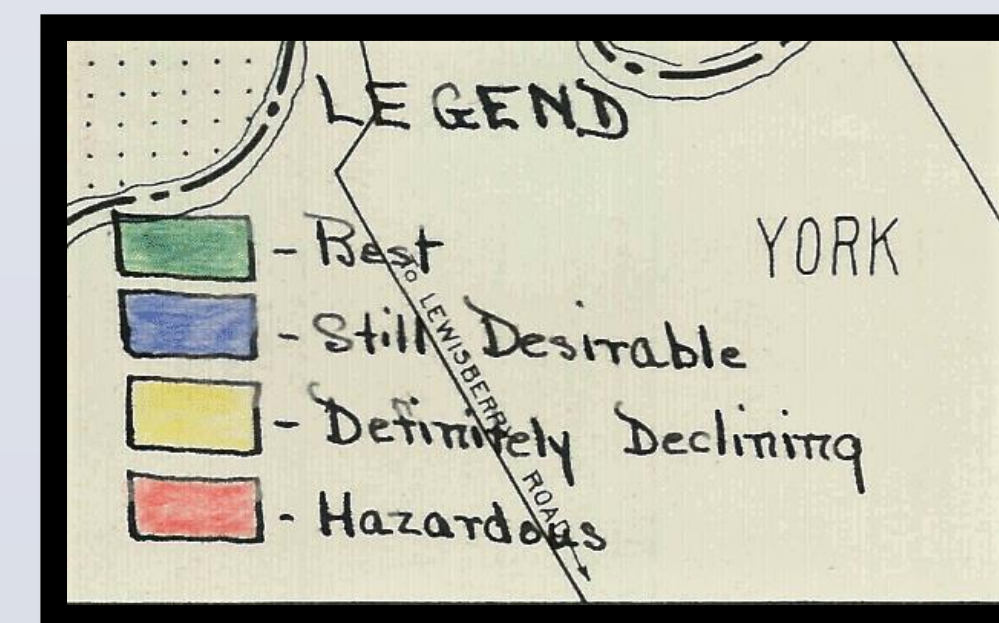 LEGEND
YORK
- Best
- Still Desirable
- Definitely Declining
- Hazardous
TO LEWISBERRY ROAD